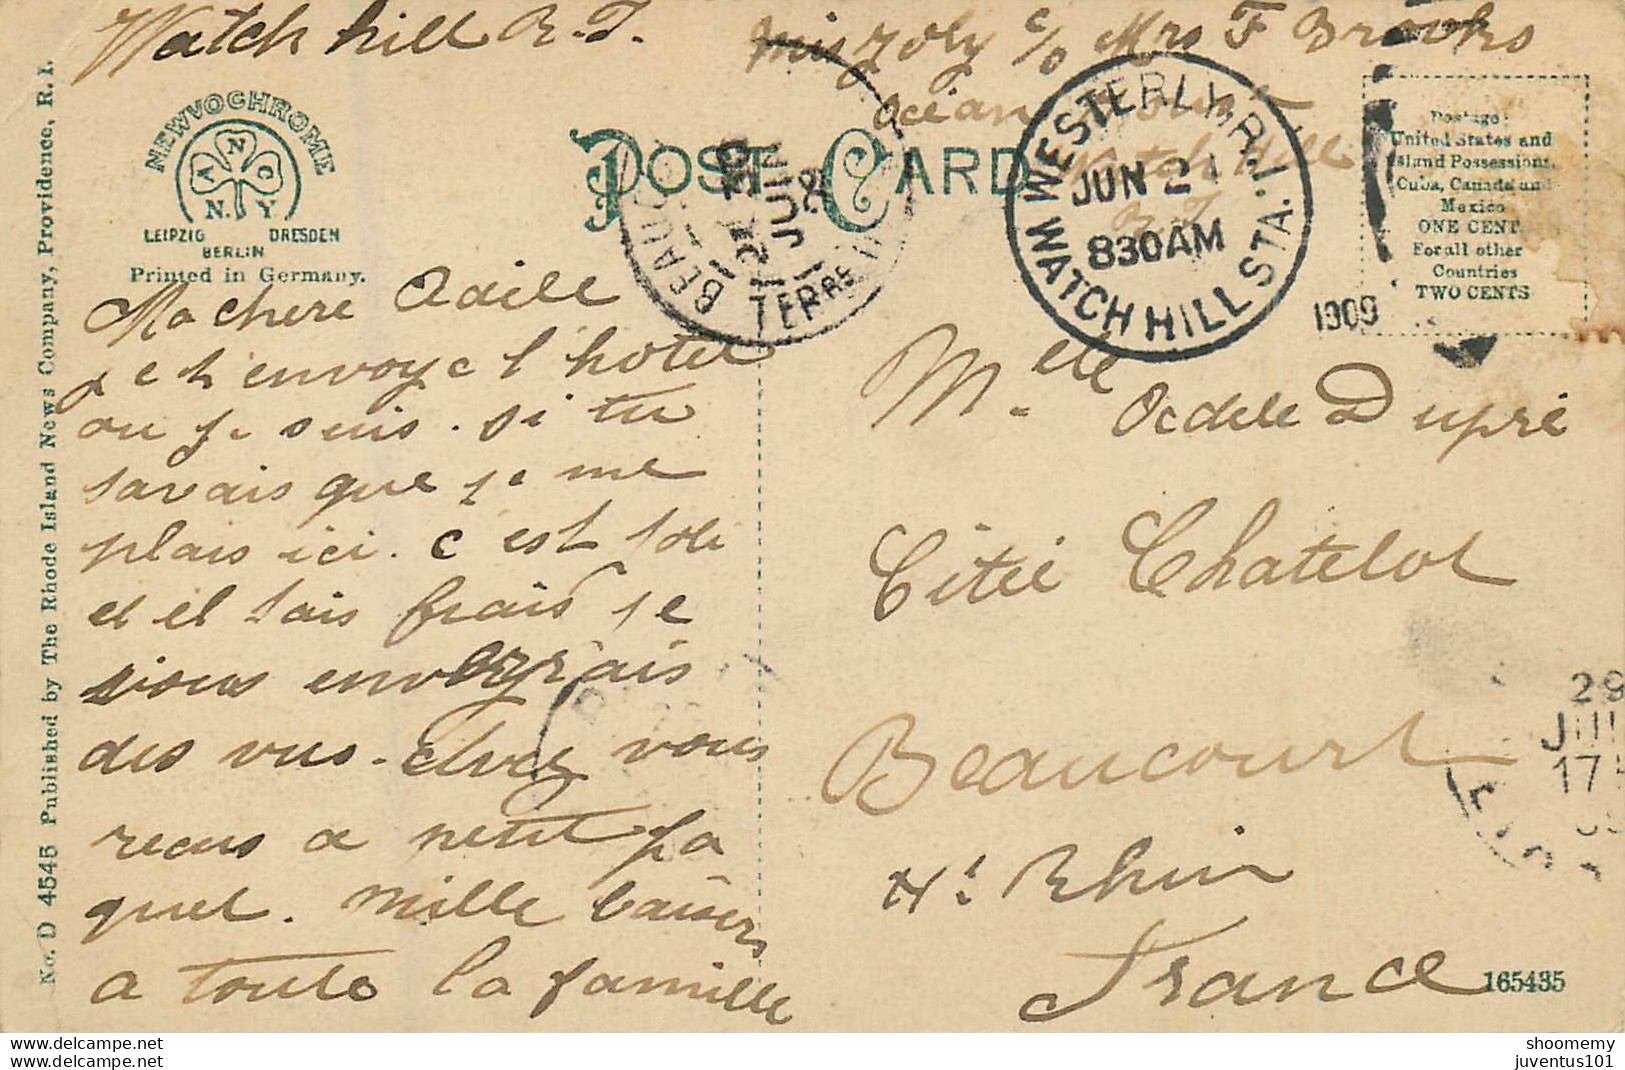 Watch hill R. I.
Miss Joly c/o Mrs F Brooks
Océan House
Watch Hill
R I
NEWVOCHROME
A N C
N. Y
LEIPZIG DRESDEN
BERLIN
Printed in Germany.
POST CARD
WESTERLY, R.I.
JUN 21
830AM
WATCH HILL STA.
1909
Postage:
United States and
Island Possessions,
Cuba, Canada and
Mexico
ONE CENT.
For all other
Countries
TWO CENTS
BEAUCOURT
JUIN
TERRE
Ma chere Adele
je t'envoye l'hotel
ou je suis. si tu
savais que je me
plais ici. c est joli
et il fais frais je
vious enverrais
des vus. avez vous
recus a petit pa
quet. mille baisers
a toute la famille
Melle Adele Dupré
Citée Chatelot
Beaucourt
Ht Rhin
France
29
17
165435
No. D 4545 Published by The Rhode Island News Company, Providence, R. I.
www.delcampe.net
shoomemy
juventus101